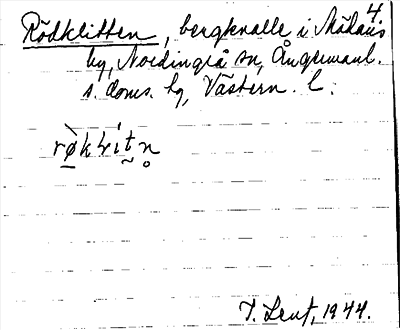 4.
Rödklitten, bergknalle i Mädans
by, Nordingrå sn, Ångermanl.
s. doms. hg, Västern. l.
rø̀klítn̥
1944.